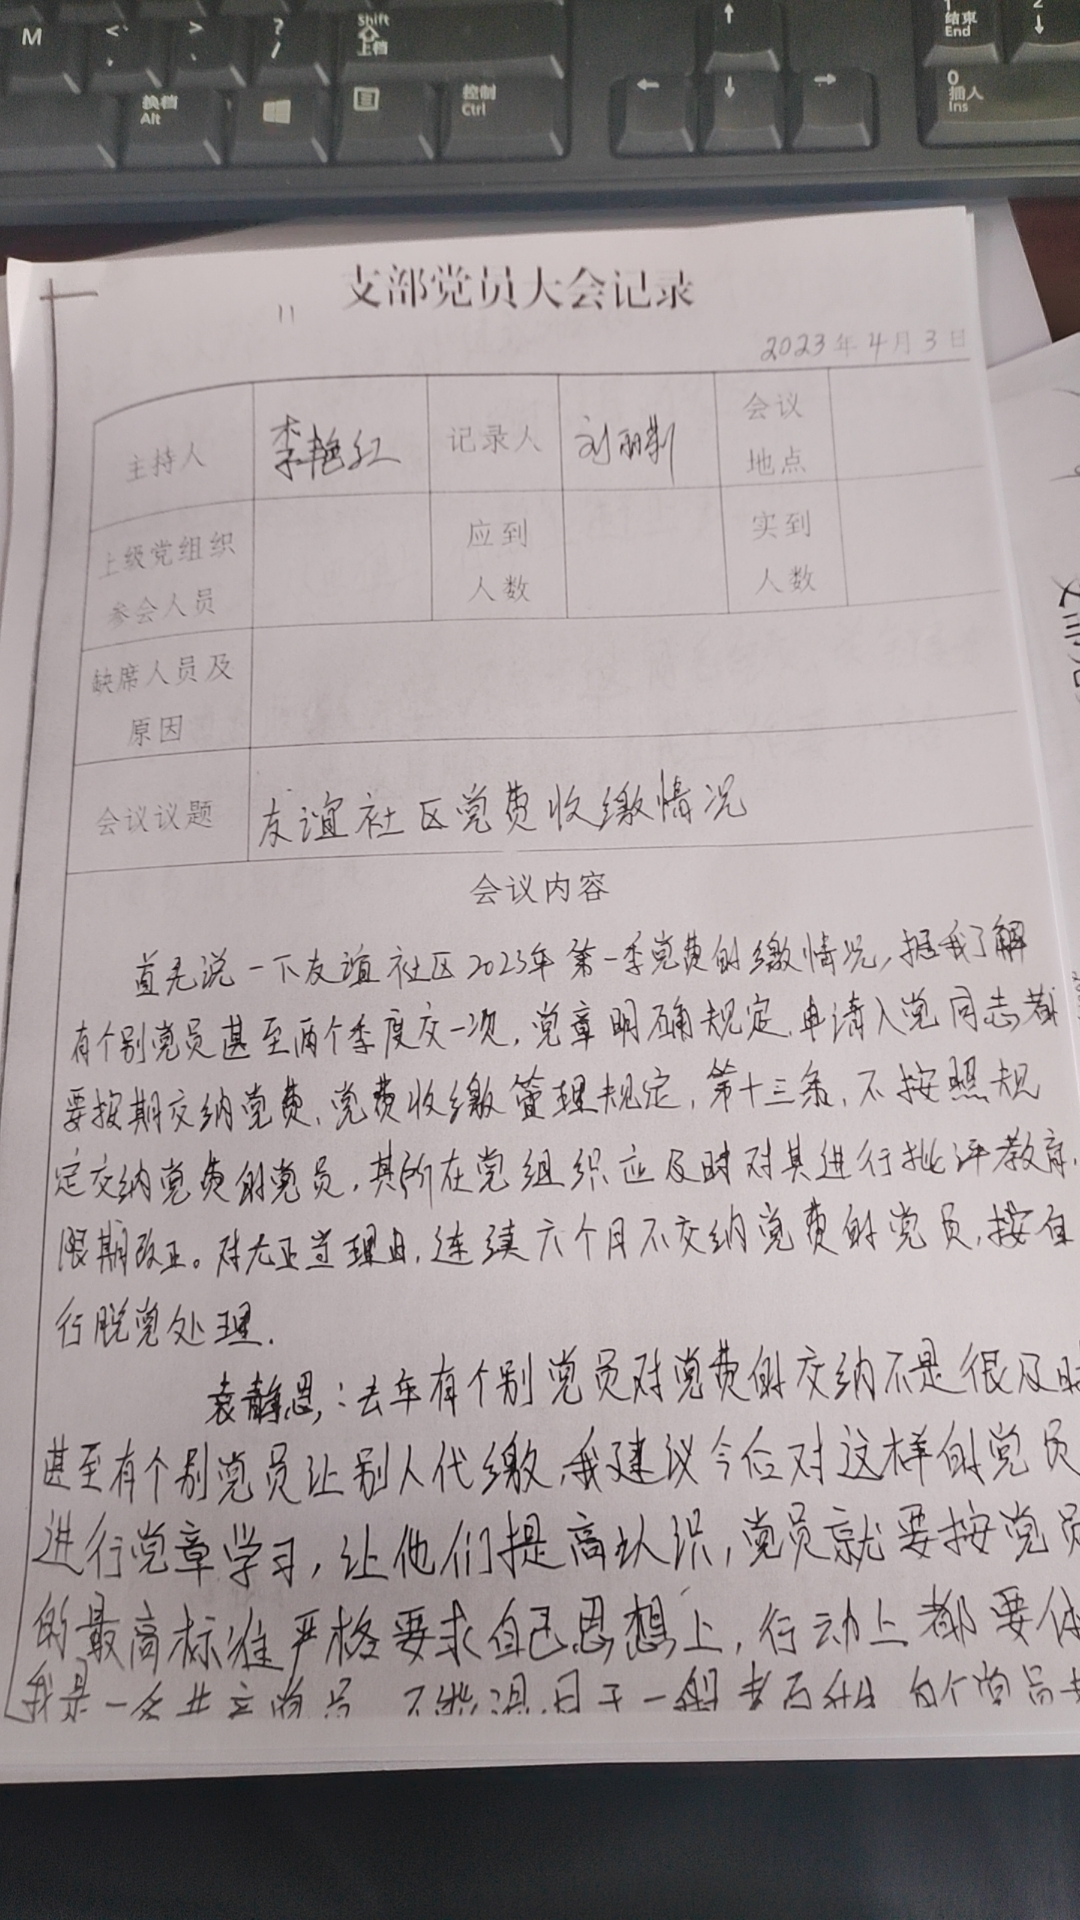 M
<
,
>
.
?
/
Shift
上档
换档
Alt
控制
Ctrl
1
结束
End
2
0
插入
Ins
支部党员大会记录
2023年4月3日
主持人 李艳红 记录人 刘丽 会议地点
上级党组织参会人员 应到人数 实到人数
缺席人员及原因
会议议题 友谊社区党费收缴情况
会议内容
首先说一下友谊社区2023年第一季党费的缴情况,据我了解
有个别党员甚至两个季度交一次,党章明确规定,申请入党同志都
要按期交纳党费,党费收缴管理规定,第十三条,不按照规
定交纳党费的党员,其所在党组织应及时对其进行批评教育,
限期改正。对无正当理由,连续六个月不交纳党费的党员,按自
行脱党处理.
袁静思:去年有个别党员对党费的交纳不是很及时
甚至有个别党员让别人代缴,我建议今后对这样的党员
进行党章学习,让他们提高认识,党员就要按党员
的最高标准严格要求自己思想上,行动上都要体
我是一名共产党员